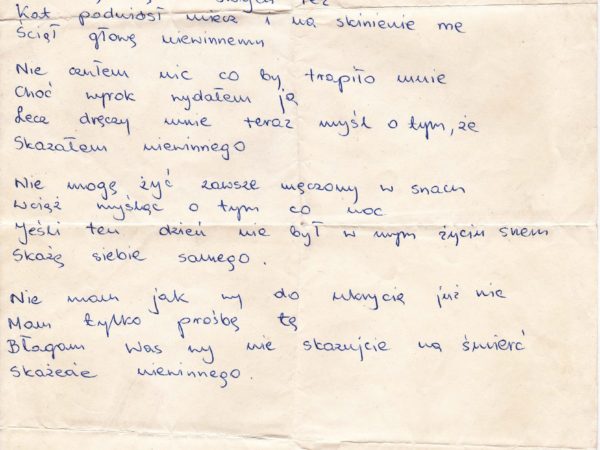 swych łez
Kat podniósł miecz i na skinienie me
Ściął głowę niewinnemu
Nie czułem nic co by trapiło mnie
Choć wyrok wydałem ja
Lecz dręczy mnie teraz myśl o tym, że
Skazałem niewinnego
Nie mogę żyć zawsze męczony w snach
Wciąż myśląc o tym co noc
Jeśli ten dzień nie był w mym życiu snem
Skażę siebie samego.
Nie mam jak wy do ukrycia już nic
Mam tylko prośbę tę
Błagam Was wy nie skazujcie na śmierć
Skażecie niewinnego.